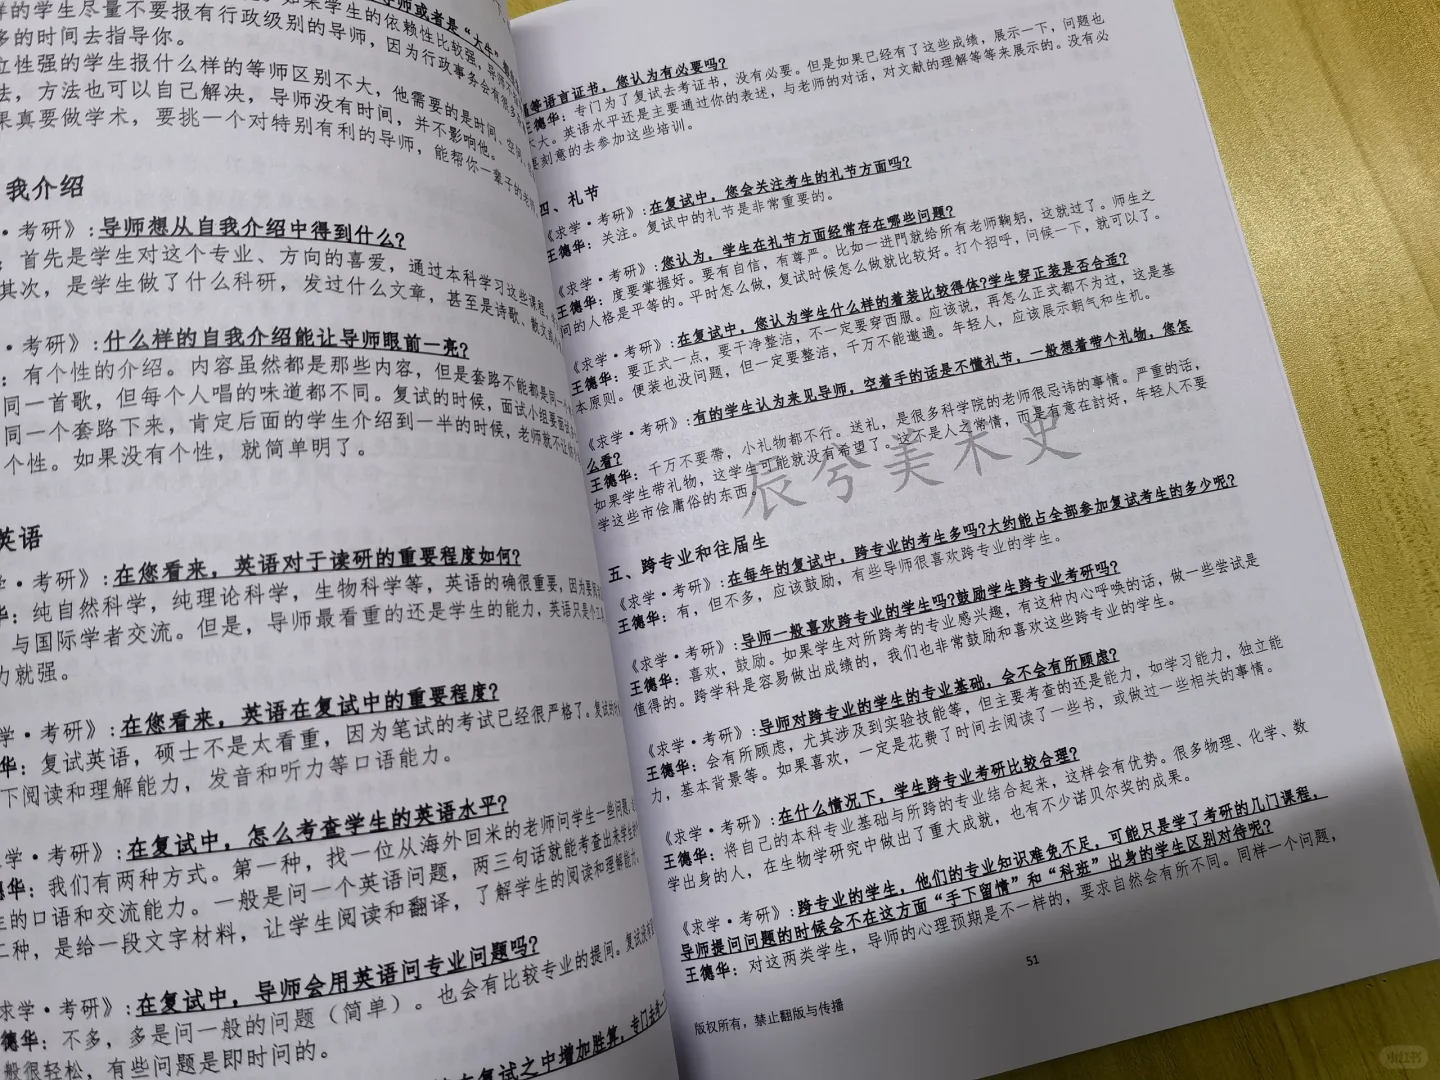 样的学生尽量不要报有行政级别的导师，因为行政事务会有很多
多的时间去指导你。
立性强的学生报什么样的等师区别不大，他需要的是时间、空间
法，方法也可以自己解决，导师没有时间，并不影响他。
果真要做学术，要挑一个对特别有利的导师，能帮你一辈子的老师
我介绍
·考研》：导师想从自我介绍中得到什么？
：首先是学生对这个专业、方向的喜爱，通过本科学习这些课程，
其次，是学生做了什么科研，发过什么文章，甚至是诗歌、散文
·考研》：什么样的自我介绍能让导师眼前一亮？
：有个性的介绍。内容虽然都是那些内容，但是套路不能都是同一个
同一首歌，但每个人唱的味道都不同。复试的时候，面试小组要面试
同一个套路下来，肯定后面的学生介绍到一半的时候，老师就不让你
个性。如果没有个性，就简单明了。
英语
学·考研》：在您看来，英语对于读研的重要程度如何？
华：纯自然科学，纯理论科学，生物科学等，英语的确很重要，因为要
与国际学者交流。但是，导师最看重的还是学生的能力，英语只是个工
力就强。
学·考研》：在您看来，英语在复试中的重要程度？
华：复试英语，硕士不是太看重，因为笔试的考试已经很严格了。复试
下阅读和理解能力，发音和听力等口语能力。
学·考研》：在复试中，怎么考查学生的英语水平？
德华：我们有两种方式。第一种，找一位从海外回米的老师问学生一些问题，
生的口语和交流能力。一般是问一个英语问题，两三句话就能考查出来学生的
二种，是给一段文字材料，让学生阅读和翻译，了解学生的阅读和理解能力。
求学·考研》：在复试中，导师会用英语问专业问题吗？
德华：不多，多是问一般的问题（简单）。也会有比较专业的提问。复试没有
般很轻松，有些问题是即时问的。
在复试之中增加胜算，专门去考
等语言证书，您认为有必要吗？
王德华：专门为了复试去考证书，没有必要。但是如果已经有了这些成绩，展示一下，问题也
不大。英语水平还是主要通过你的表述，与老师的对话，对文献的理解等等来展示的。没有必
要刻意的去参加这些培训。
四、礼节
《求学·考研》：在复试中，您会关注考生的礼节方面吗？
王德华：关注。复试中的礼节是非常重要的。
《求学·考研》：您认为，学生在礼节方面经常存在哪些问题？
王德华：度要掌握好。要有自信，有尊严。比如一进門就给所有老师鞠躬，这就过了。师生之
间的人格是平等的。平时怎么做，复试时候怎么做就比较好。打个招呼，问候一下，就可以了。
《求学·考研》：在复试中，您认为学生什么样的着装比较得体？学生穿正装是否合适？
王德华：要正式一点，要干净整洁，不一定要穿西服。应该说，再怎么正式都不为过，这是基
本原则。便装也没问题，但一定要整洁，千万不能邋遢。年轻人，应该展示朝气和生机。
《求学·考研》：有的学生认为来见导师，空着手的话是不懂礼节，一般想着带个礼物，您怎
么看？
王德华：千万不要带，小礼物都不行。送礼，是很多科学院的老师很忌讳的事情。严重的话，
如果学生带礼物，这学生可能就没有希望了。这不是人之常情，而是有意在討好，年轻人不要
学这些市侩庸俗的东西。
辰兮美术史
五、跨专业和往届生
《求学·考研》：在每年的复试中，跨专业的考生多吗？大约能占全部参加复试考生的多少呢？
王德华：有，但不多，应该鼓励，有些导师很喜欢跨专业的学生。
《求学·考研》：导师一般喜欢跨专业的学生吗？鼓励学生跨专业考研吗？
王德华：喜欢，鼓励。如果学生对所跨考的专业感兴趣，有这种内心呼唤的话，做一些尝试是
值得的。跨学科是容易做出成绩的，我们也非常鼓励和喜欢这些跨专业的学生。
《求学·考研》：导师对跨专业的学生的专业基础，会不会有所顾虑？
王德华：会有所顾虑，尤其涉及到实验技能等，但主要考查的还是能力，如学习能力，独立能
力，基本背景等。如果喜欢，一定是花费了时间去阅读了一些书，或做过一些相关的事情。
《求学·考研》：在什么情况下，学生跨专业考研比较合理？
王德华：将自己的本科专业基础与所跨的专业结合起来，这样会有优势。很多物理、化学、数
学出身的人，在生物学研究中做出了重大成就，也有不少诺贝尔奖的成果。
《求学·考研》：跨专业的学生，他们的专业知识难免不足，可能只是学了考研的几门课程，
导师提问问题的时候会不在这方面“手下留情”和“科班”出身的学生区别对待呢？
王德华：对这两类学生，导师的心理预期是不一样的，要求自然会有所不同。同样一个问题，
51
版权所有，禁止翻版与传播
小红书